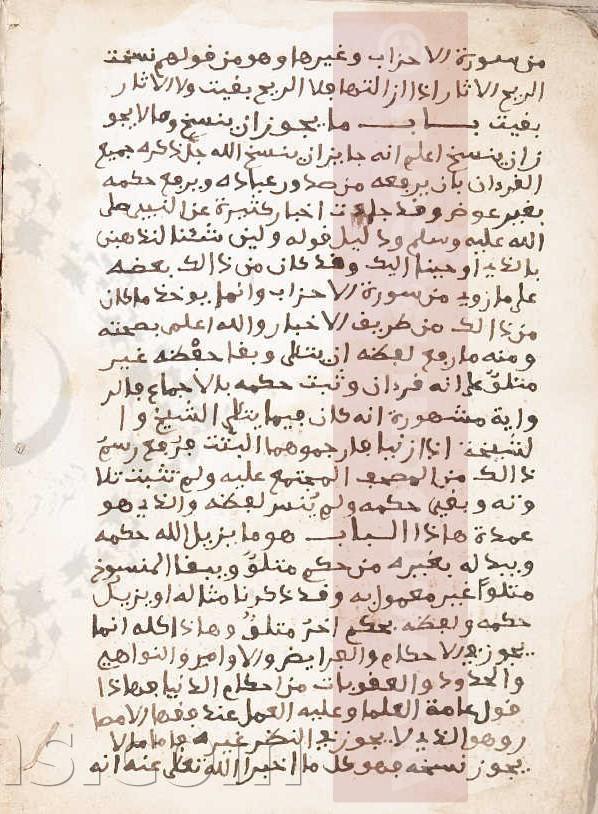 من سورة الاحزاب وغيرها وهو من قولهم نسخت
الريح الاثار اذا ازالتها فلا الريح بقيت ولا الاثار
بقيت باب ما يجوز ان ينسخ وما لا يجو
ز ان ينسخ اعلم انه جايز ان ينسخ الله جل ذكره جميع
القرءان بان يرفعه من صدور عباده ويرفع حكمه
بغير عوض وقد جاءت اخبار كثيرة عن النبيى صلى
الله عليه وسلم ودليل قوله ولين شئنا لنذهبن
بالذي اوحينا اليك وقد كان من ذالك بعضه
على ما روي من سورة الاحزاب وانما يوخذ ما كان
من ذالك من طريف الاخبار والله اعلم بصحته
ومنه ما رفع لفظه ان يتلى وبقا حفظه غير
متلو على انه قرءان وثبت حكمه بالاجماع والر
واية مشهورة انه كان فيما يتلى الشيخ وا
لشيخة اذا زنيا فارجموهما البتت فرفع رسم
ذالك من المصحف المجتمع عليه ولم تثبت تلا
وته وبقي حكمه ولم ينسر لفظه والذي هو
عمدة هاذا الباب هو ما يزيل الله حكمه
ويبدله بغيره من حكم متلو ويبقا المنسوخ
متلوا غير معمول به وقد ذكرنا مثاله او يزيل
حكمه ولفظه بحكم اخر متلو وهاذا كله انما
يجوز في الاحكام والفرايض والاوامر والنواهي
والحدود والعقوبات من احكام الدنيا فهاذا
قول عامة العلما وعليه العمل عند فقها الامصا
ر وهو الذي لا يجوز في النظر غيره فاما ما لا
يجوز نسخه فهو كل ما اخبرا الله تعلى عنه انه